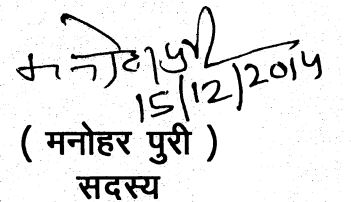 मनोहर पुरी
15/12/2014
( मनोहर पुरी )
सदस्य